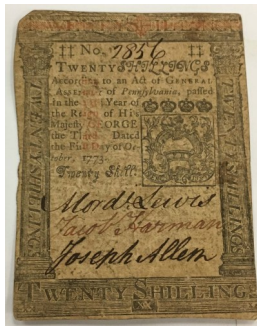 TWENTY SHILLINGS
No. 7856
TWENTY SHILLINGS
According to an Act of GENERAL
ASSEMBLY of Pennsylvania, passed
in the Year of
the Reign of His
Majesty GEORGE
the Third. Dated
the First Day of Oc-
tober, 1773.
Twenty Shill.
TWENTY SHILLING
SHILLINGS
Mordᵉ Lewis
Jacob Harman
Joseph Allen
TWENTY SHILLING
XX